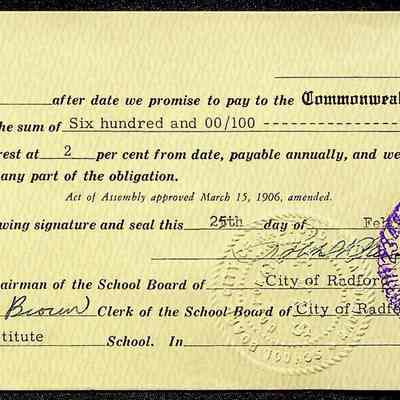 after date we promise to pay to the Commonweal
he sum of Six hundred and 00/100 ------------
rest at 2 per cent from date, payable annually, and we
any part of the obligation.
Act of Assembly approved March 15, 1906, amended.
wing signature and seal this 25th day of Feb
airman of the School Board of City of Radfor
Brown Clerk of the School Board of City of Radf
stitute School. In